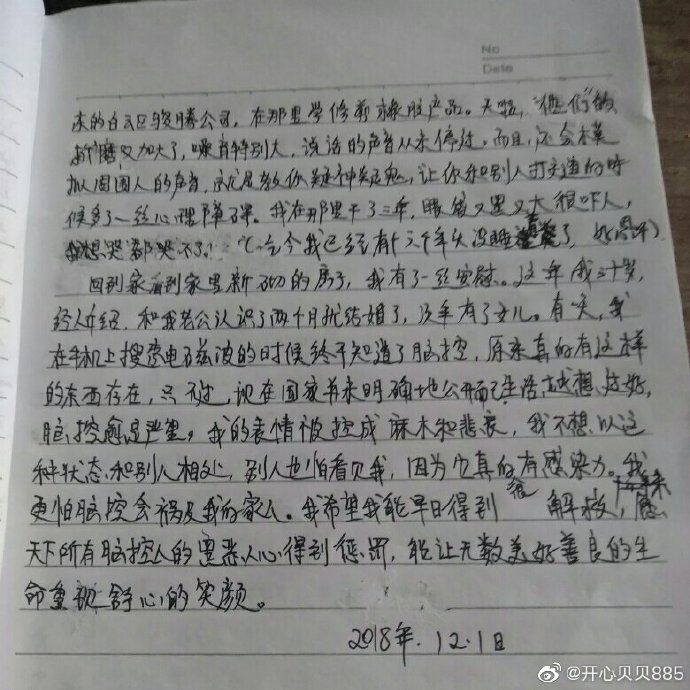 No
Date
来的白云区骏腾公司，在那里学修剪橡胶产品。天啦，“他们”的
折磨又加大了，噪音特别大，说话的声音从未停过。而且，还会模
拟周围人的声音，就是教你疑神疑鬼，让你和别人打交道的时
候多了一丝心理障碍。我在那里干了三年，眼袋又黑又大很吓人，
想哭都哭不了。（至今我已经有十六个年头没睡着觉了，
回到家看到家里新砌的房子，我有了一丝安慰。这年我三十岁，
经人介绍，和我老公认识了两个月就结婚了，次年有了女儿。有一天，我
在手机上搜索电磁波的时候终于知道了脑控，原来真的有这样
的东西存在，只不过，现在国家并未明确地公开而已。生活越想过好，
脑控愈是严重。我的表情被控成麻木和悲哀，我不想以这
种状态和别人相处，别人也怕看见我，因为它真的有感染力。我
更怕脑控会祸及我的家人。我希望我能早日得到 解救，愿
天下所有脑控人的罪恶人心得到惩罚，能让无数美好善良的生
命重现舒心的笑颜。
2018年.12.1日
@开心贝贝885